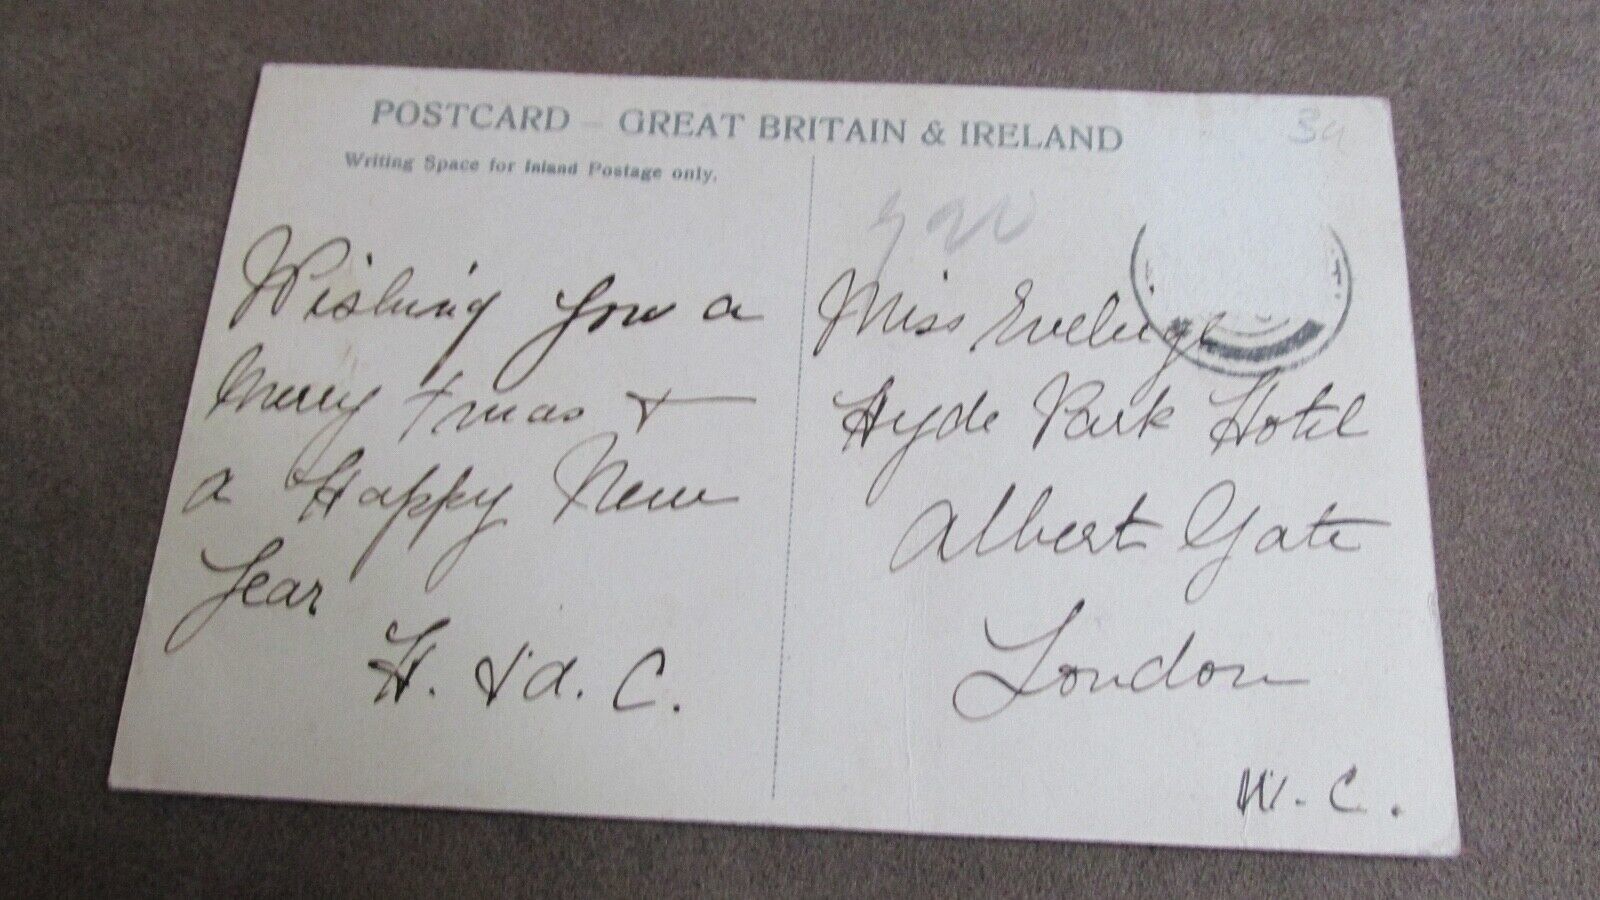 POSTCARD – GREAT BRITAIN & IRELAND
Writing Space for Inland Postage only.
Wishing you a
Merry Xmas &
a Happy New
Year
H. & a. C.
Miss
Hyde Park Hotel
Albert Gate
London
W. C.